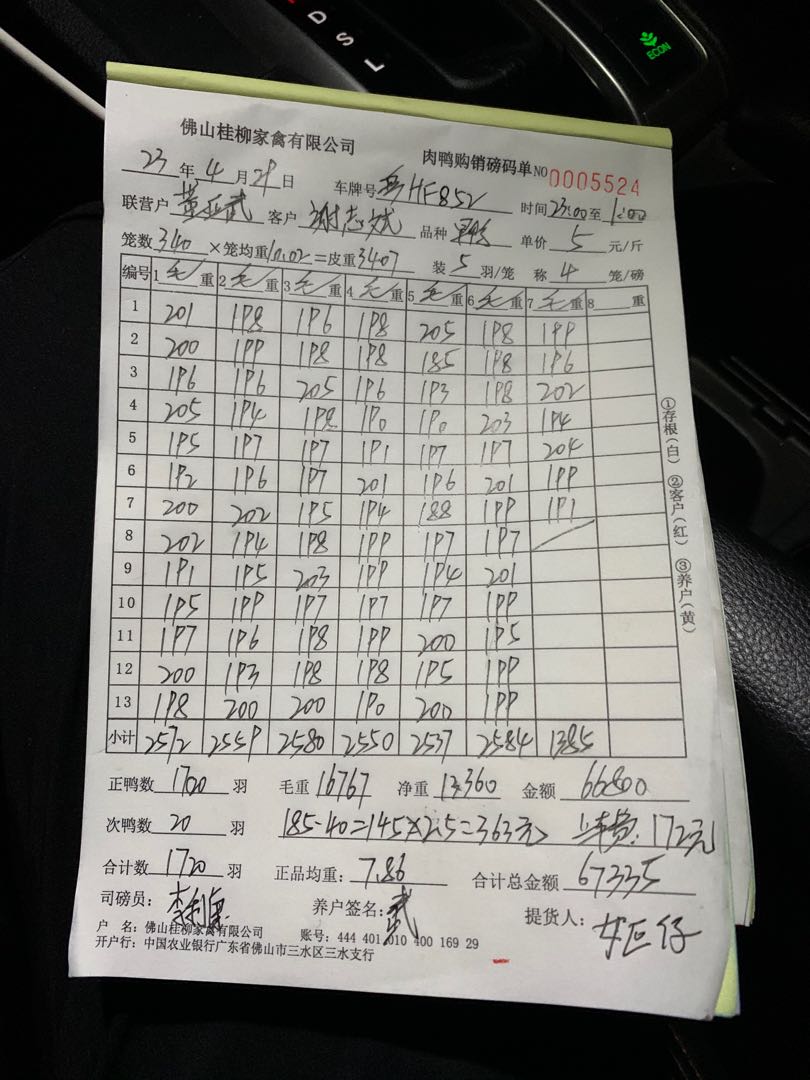 佛山桂柳家禽有限公司
肉鸭购销磅码单 NO 0005524
23 年 4 月 29 日 车牌号 HF852 时间 23:00 至 1:00
联营户 黄亚武 客户 谢志斌 品种 单价 5 元/斤
笼数 340 ×笼均重 10.02 =皮重 3407 装 5 羽/笼 称 4 笼/磅
编号 1 毛 重 2 毛 重 3 毛 重 4 毛 重 5 毛 重 6 毛 重 7 毛 重 8 重
1 201 198 196 198 205 198 199
2 200 199 198 198 185 198 196
3 196 196 205 196 193 198 202
4 205 194 198 190 190 203 194
5 195 197 197 191 197 197 204
6 192 196 197 201 196 201 199
7 200 202 195 194 188 199 191
8 202 194 198 199 197 197
9 191 195 203 199 194 201
10 195 199 197 197 197 199
11 197 196 198 199 200 195
12 200 193 198 198 195 199
13 198 200 200 190 200 199
小计 2572 2559 2580 2550 2537 2584 1385
①存根(白) ②客户(红) ③养户(黄)
正鸭数 1700 羽 毛重 16767 净重 13360 金额 66800
次鸭数 20 羽 185-40=145×2.5=363元 车费:172元
合计数 1720 羽 正品均重: 7.86 合计总金额 67335
司磅员: 养户签名: 武 提货人:
户 名: 佛山桂柳家禽有限公司 账号: 444 401 010 400 169 29
开户行: 中国农业银行广东省佛山市三水区三水支行
D
S
L
ECON